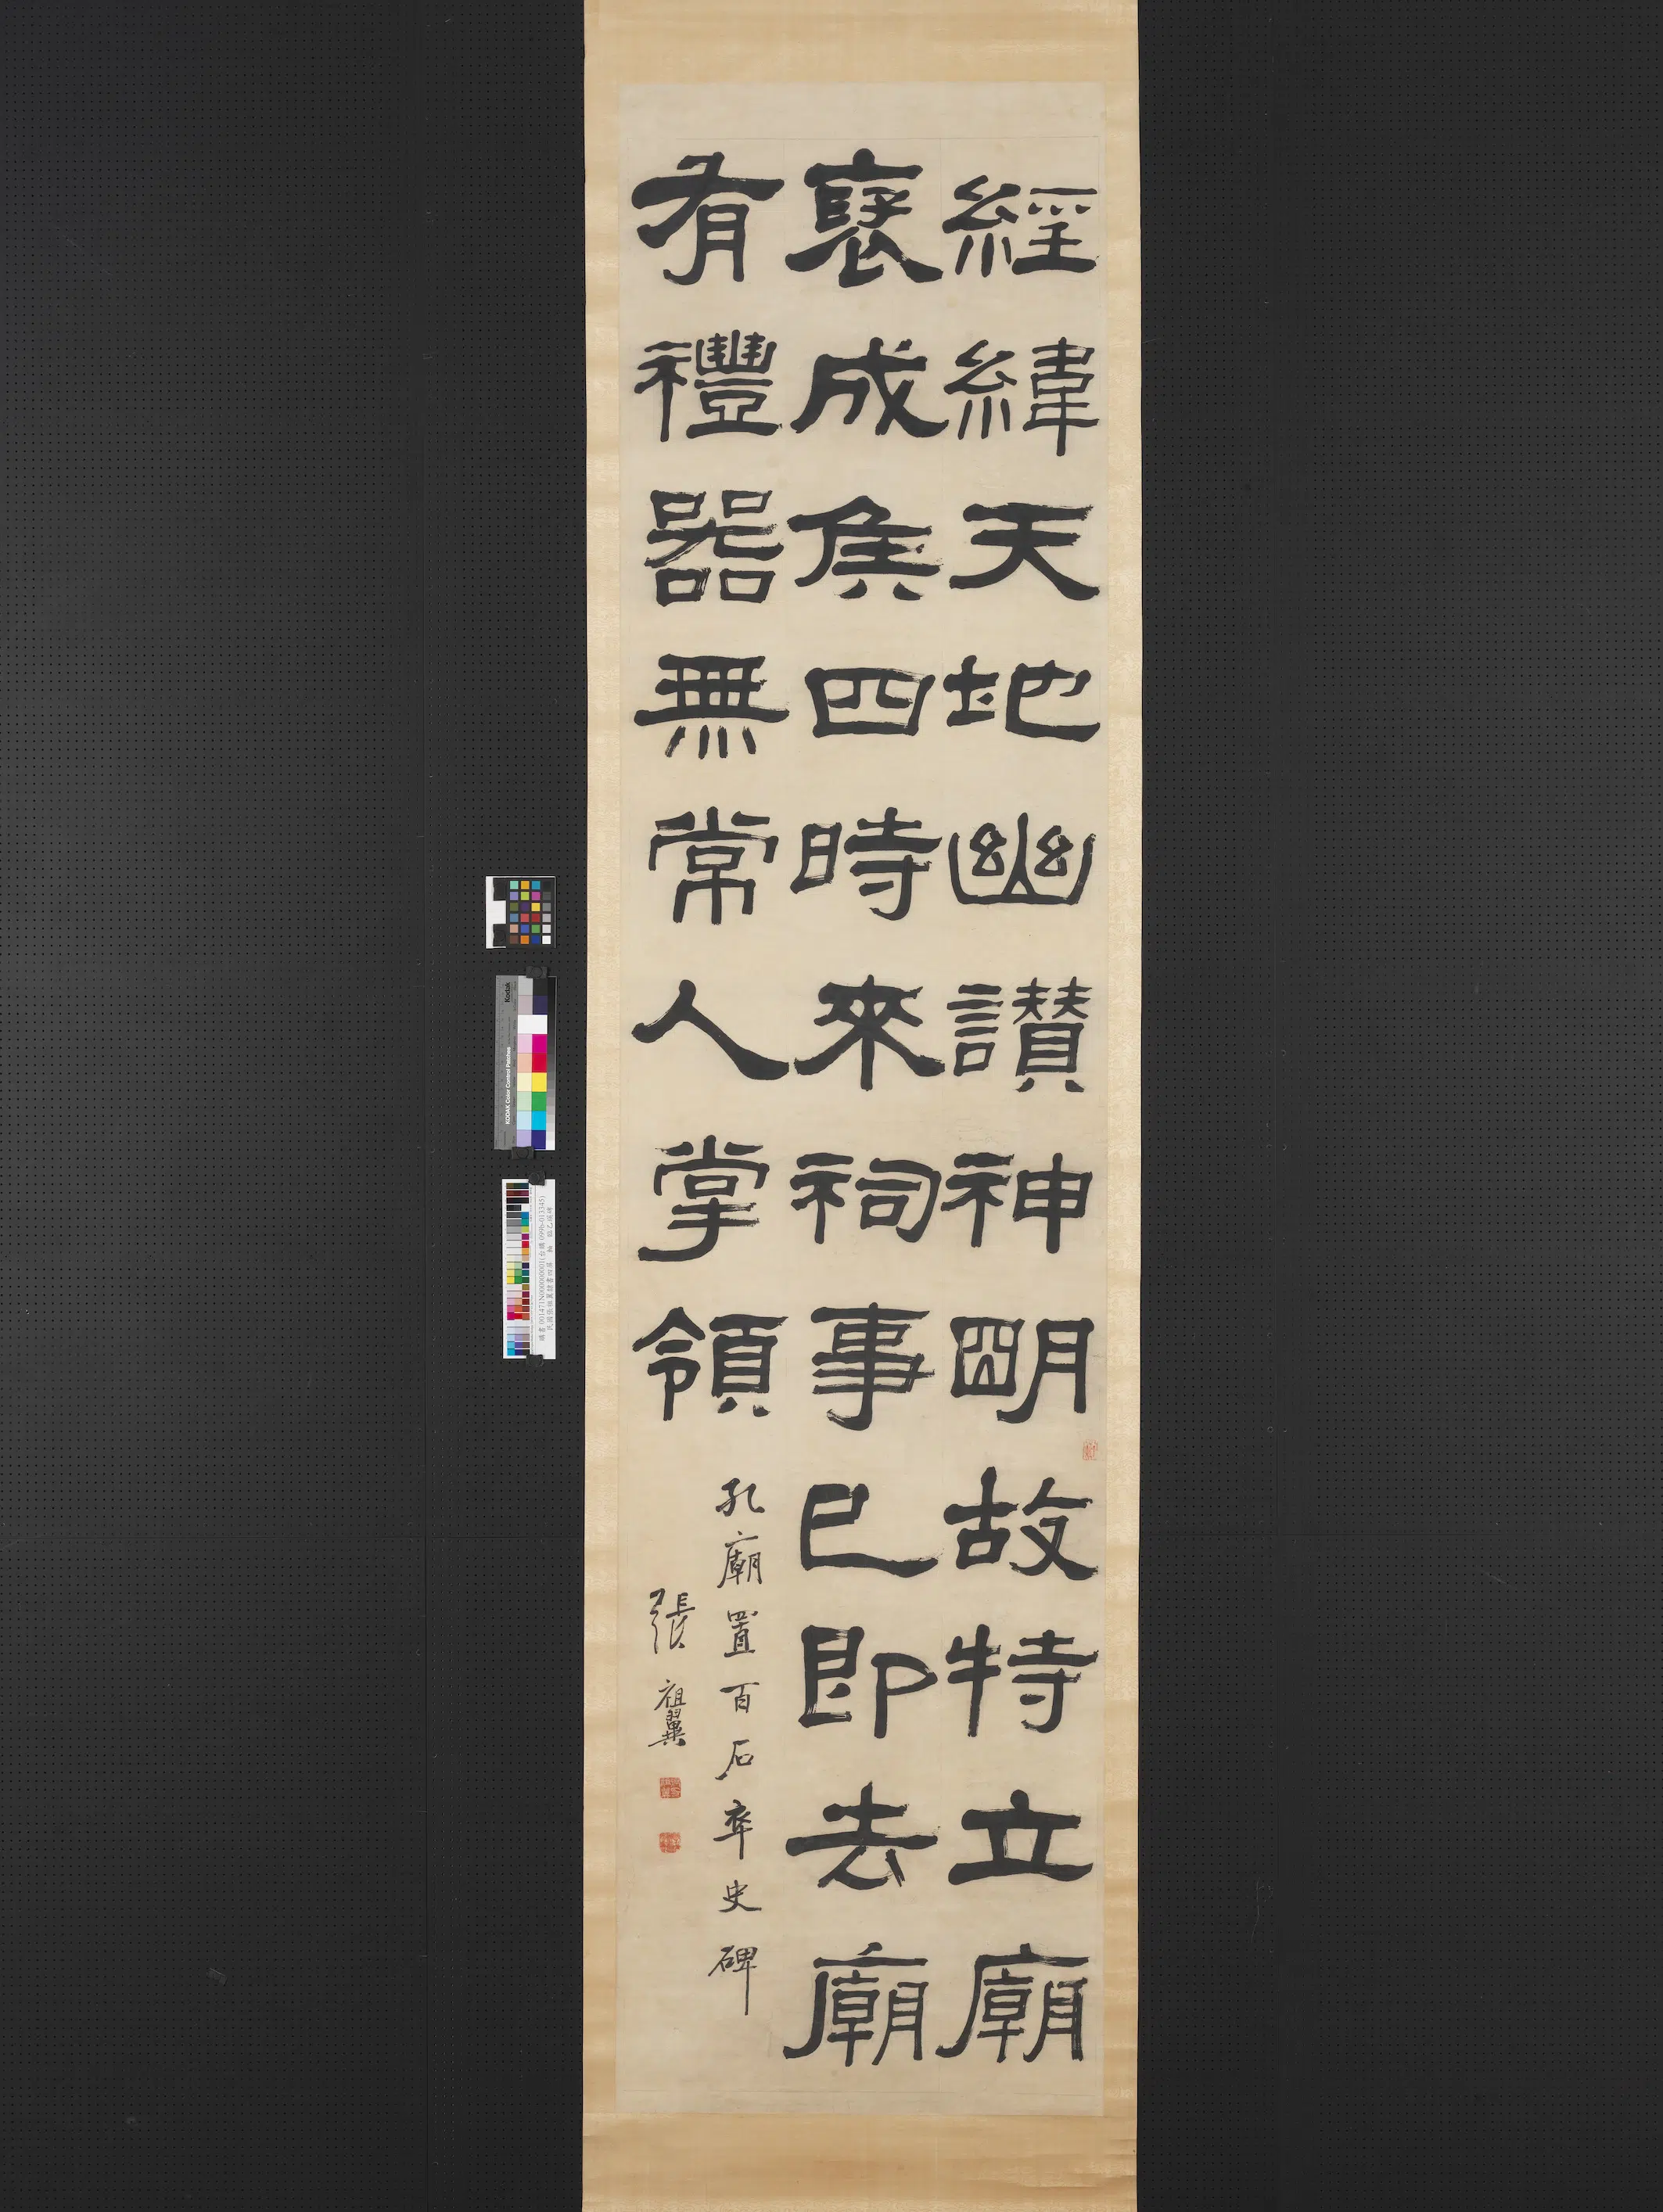 經緯天地幽讃神朙故特立廟
襃成侯四時來祠事已即去廟
有禮器無常人掌領
孔廟置百石卒史碑
張祖翼
Kodak
KODAK Color Control Patches